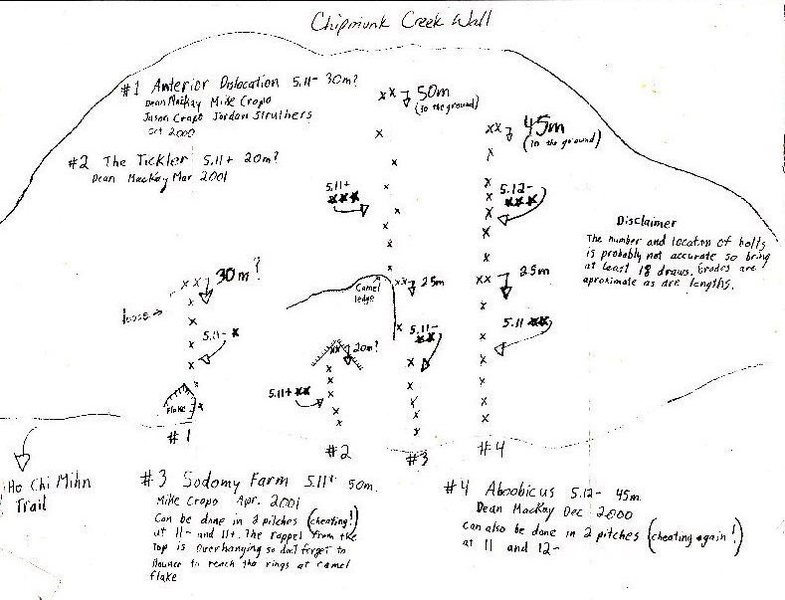 Chipmunk Creek Wall
#1 Anterior Dislocation 5.11- 30m?
Dean MacKay Mike Cropo
Jason Cropo Jordan Struthers
Oct 2000
#2 The Tickler 5.11+ 20m?
Dean MacKay Mar 2001
xx 50m
(to the ground)
xx 45m
(to the ground)
5.11+
xxx
5.12-
xxx
Disclaimer
The number and location of bolts
is probably not accurate so bring
at least 18 draws. Grades are
aproximate as are lengths.
xx 30m?
loose
5.11- x
Flake
#1
Camel
ledge
xx 25m
xx 25m
5.11-
xx
5.11 xx
xx 20m?
5.11+ xx
#2
#3
#4
Ho Chi Mihn
Trail
#3 Sodomy Farm 5.11+ 50m.
Mike Cropo Apr. 2001
Can be done in 2 pitches (cheating!)
at 11- and 11+. The rappel from the
top is overhanging so don't forget to
bounce to reach the rings at camel
flake
#4 Aboobicus 5.12- 45m.
Dean MacKay Dec 2000
can also be done in 2 pitches (cheating again!)
at 11 and 12-